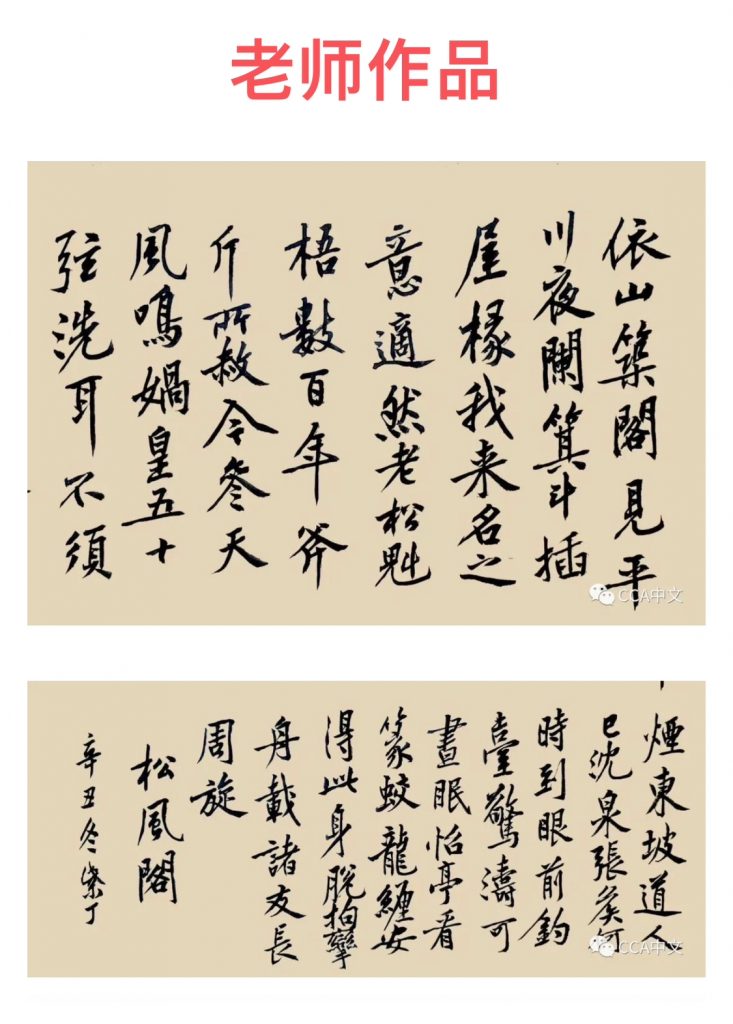 老师作品
依山築閣見平
川夜闌箕斗插
屋椽我来名之
意適然老松魁
梧數百年斧
斤所赦今參天
風鳴媧皇五十
弦洗耳不須
CCA中文
煙東坡道人
已沈泉張矦何
時到眼前釣
臺驚濤可
晝眠怡亭看
篆蛟龍纏安
得此身脫拘攣
舟載諸友長
周旋
松風閣
辛丑冬紫丁
CCA中文